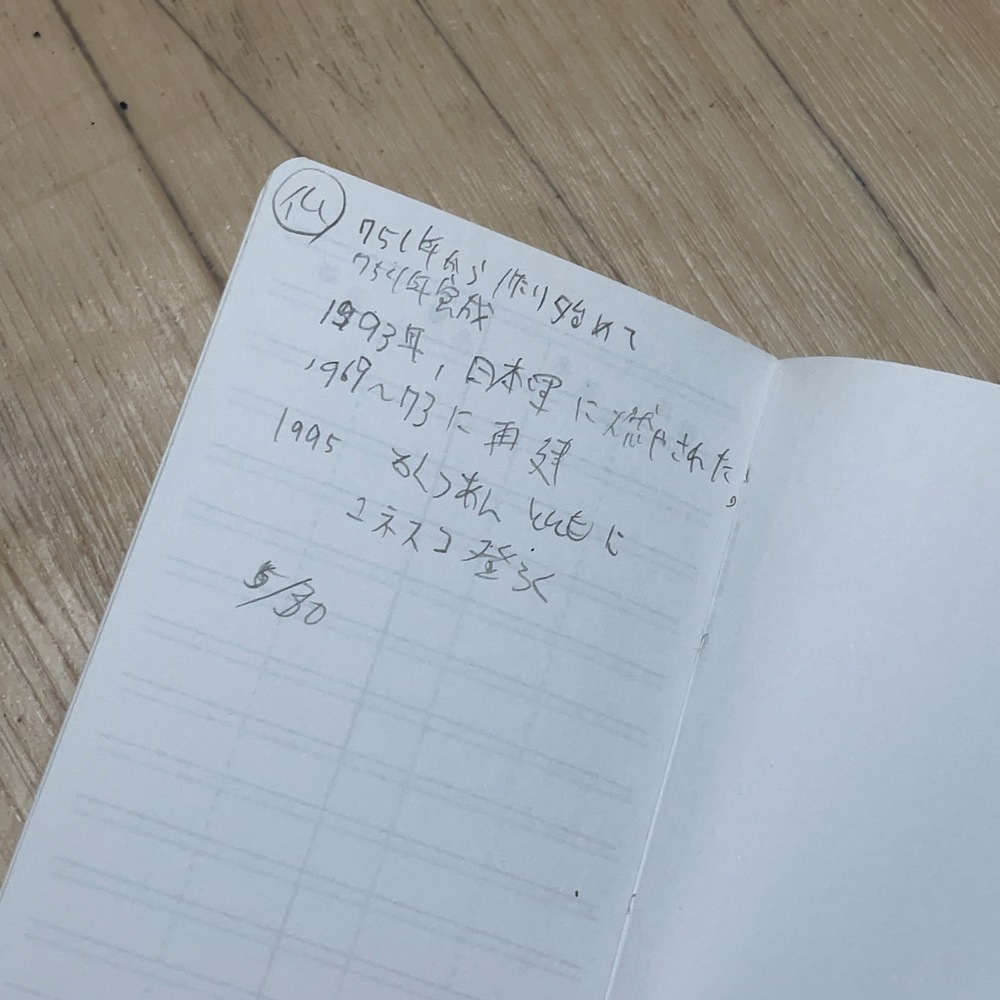 仏
751年から作り始めて
754年完成
1593年,日本軍に燃やされた。
1969〜73に再建
1995 せくつあんとともに
ユネスコ登ろく
5/30